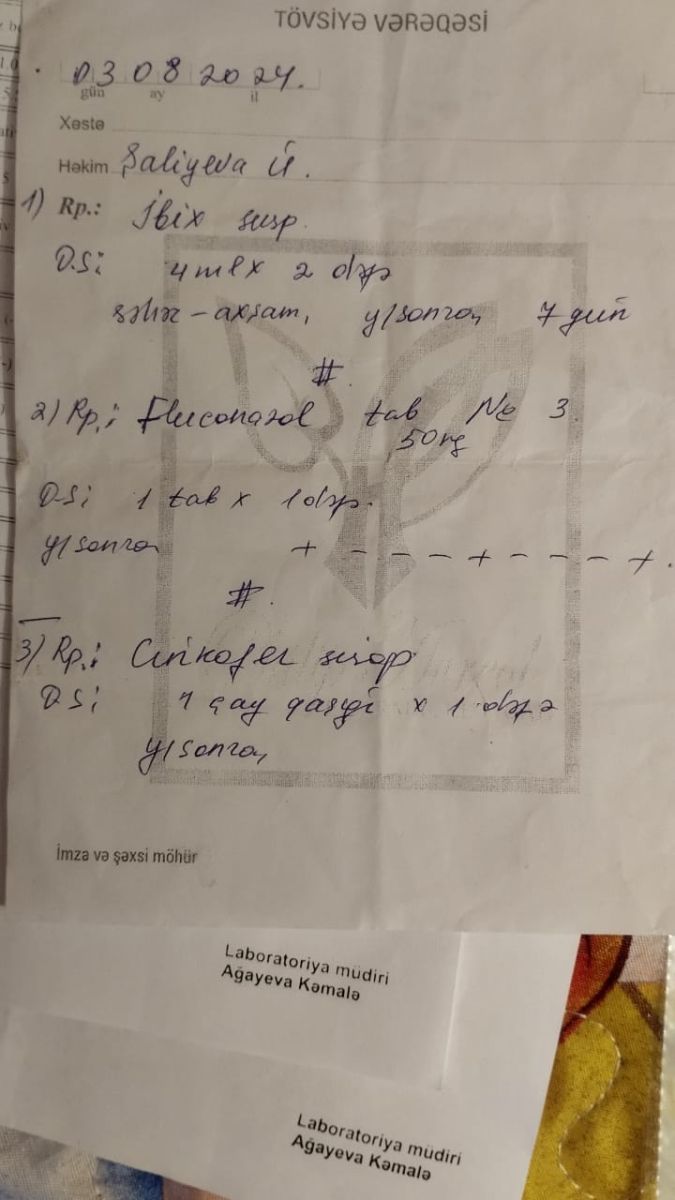 TÖVSİYƏ VƏRƏQƏSİ
03 08 2024.
gün ay il
Xəstə
Həkim Şaliyeva Ü.
1) Rp.: İbix susp.
D.S: 4 ml x 2 dəfə
səhər - axşam, y/sonra, 7 gün
#
2) Rp.: Fluconazol tab № 3.
50 mg
D.S: 1 tab x 1 dəf.
y/sonra + - - - - + - - - - +.
#.
3) Rp.: Cinkofer sirop
D.S: 1 çay qaşığı x 1 dəfə
y/sonra,
İmza və şəxsi möhür
Laboratoriya müdiri
Ağayeva Kəmalə
Laboratoriya müdiri
Ağayeva Kəmalə